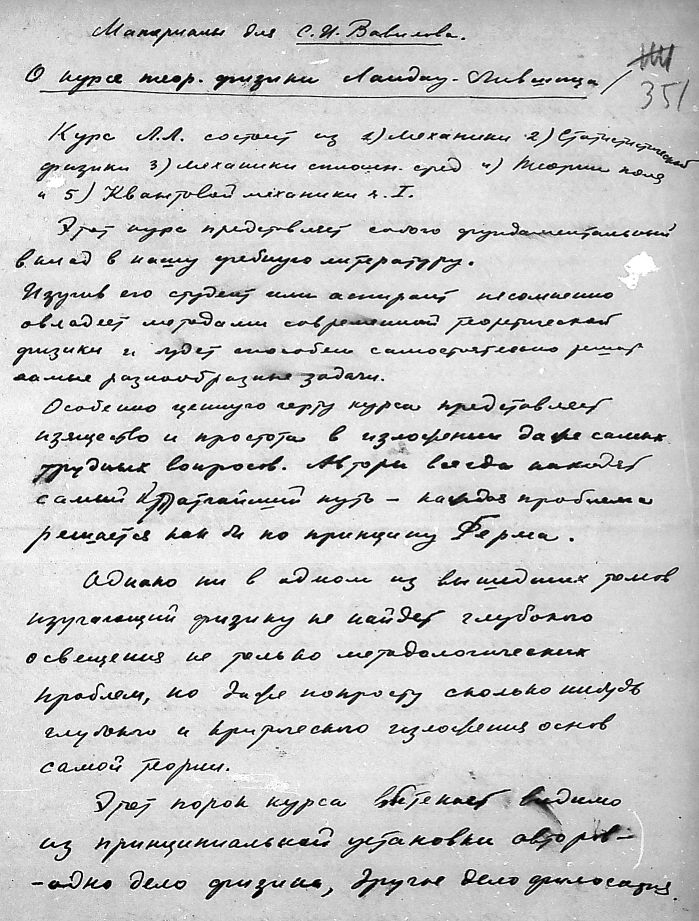 Материалы для С.И. Вавилова.
О курсе теор. физики Ландау-Лившица
351
Курс Л.Л. состоит из 1) механики 2) Статистической
физики 3) механики сплошн. сред 4) Теории поля
и 5) Квантовой механики ч. I.
Этот курс представляет собою фундаментальный
вклад в нашу учебную литературу.
Изучив его студент или аспирант несомненно
овладеет методами современной теоретической
физики и будет способен самостоятельно решать
самые разнообразные задачи.
Особенно ценную черту курса представляет
изящество и простота в изложении даже самых
трудных вопросов. Авторы всегда находят
самый кратчайший путь – каждая проблема
решается как бы по принципу Ферма.
Однако ни в одном из вышедших томов
изучающий физику не найдет глубокого
освещения не только методологических
проблем, но даже попросту сколько нибудь
глубокого и критического изложения основ
самой теории.
Этот порок курса вытекает видимо
из принципиальной установки авторов –
– одно дело физика, другое дело философия.